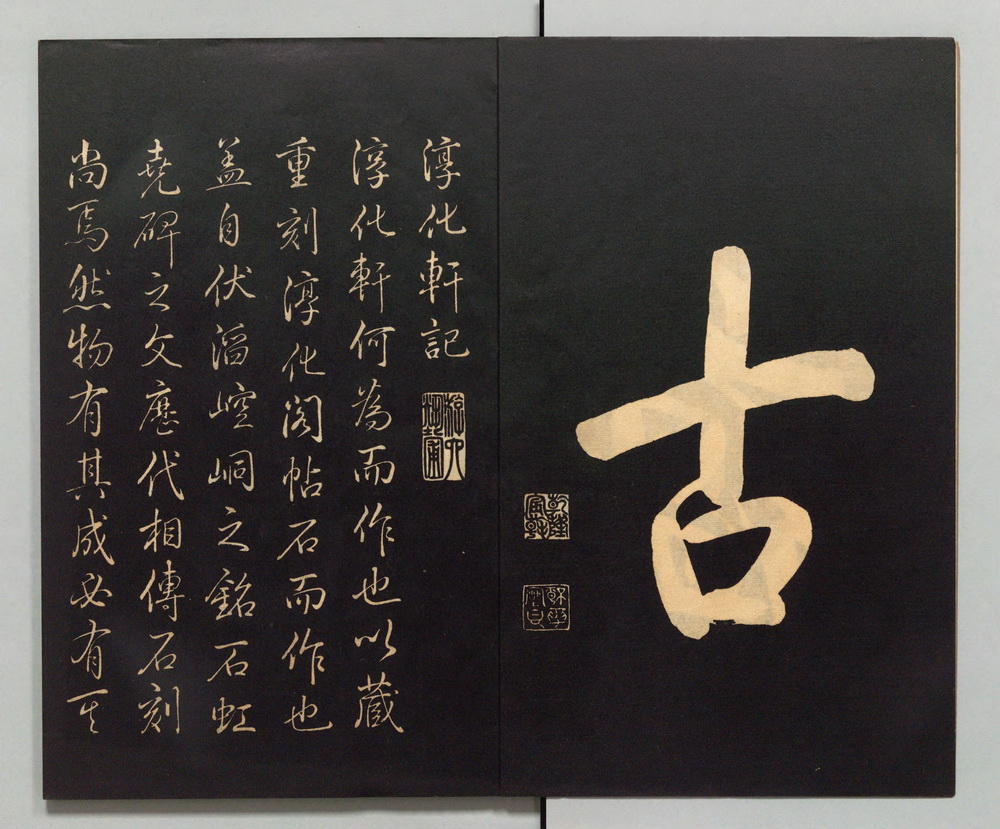 古
淳化軒記
淳化軒何為而作也以藏
重刻淳化閣帖石而作也
盖自伏滔崆峒之銘石虹
堯碑之文歷代相傳石刻
尚焉然物有其成必有其